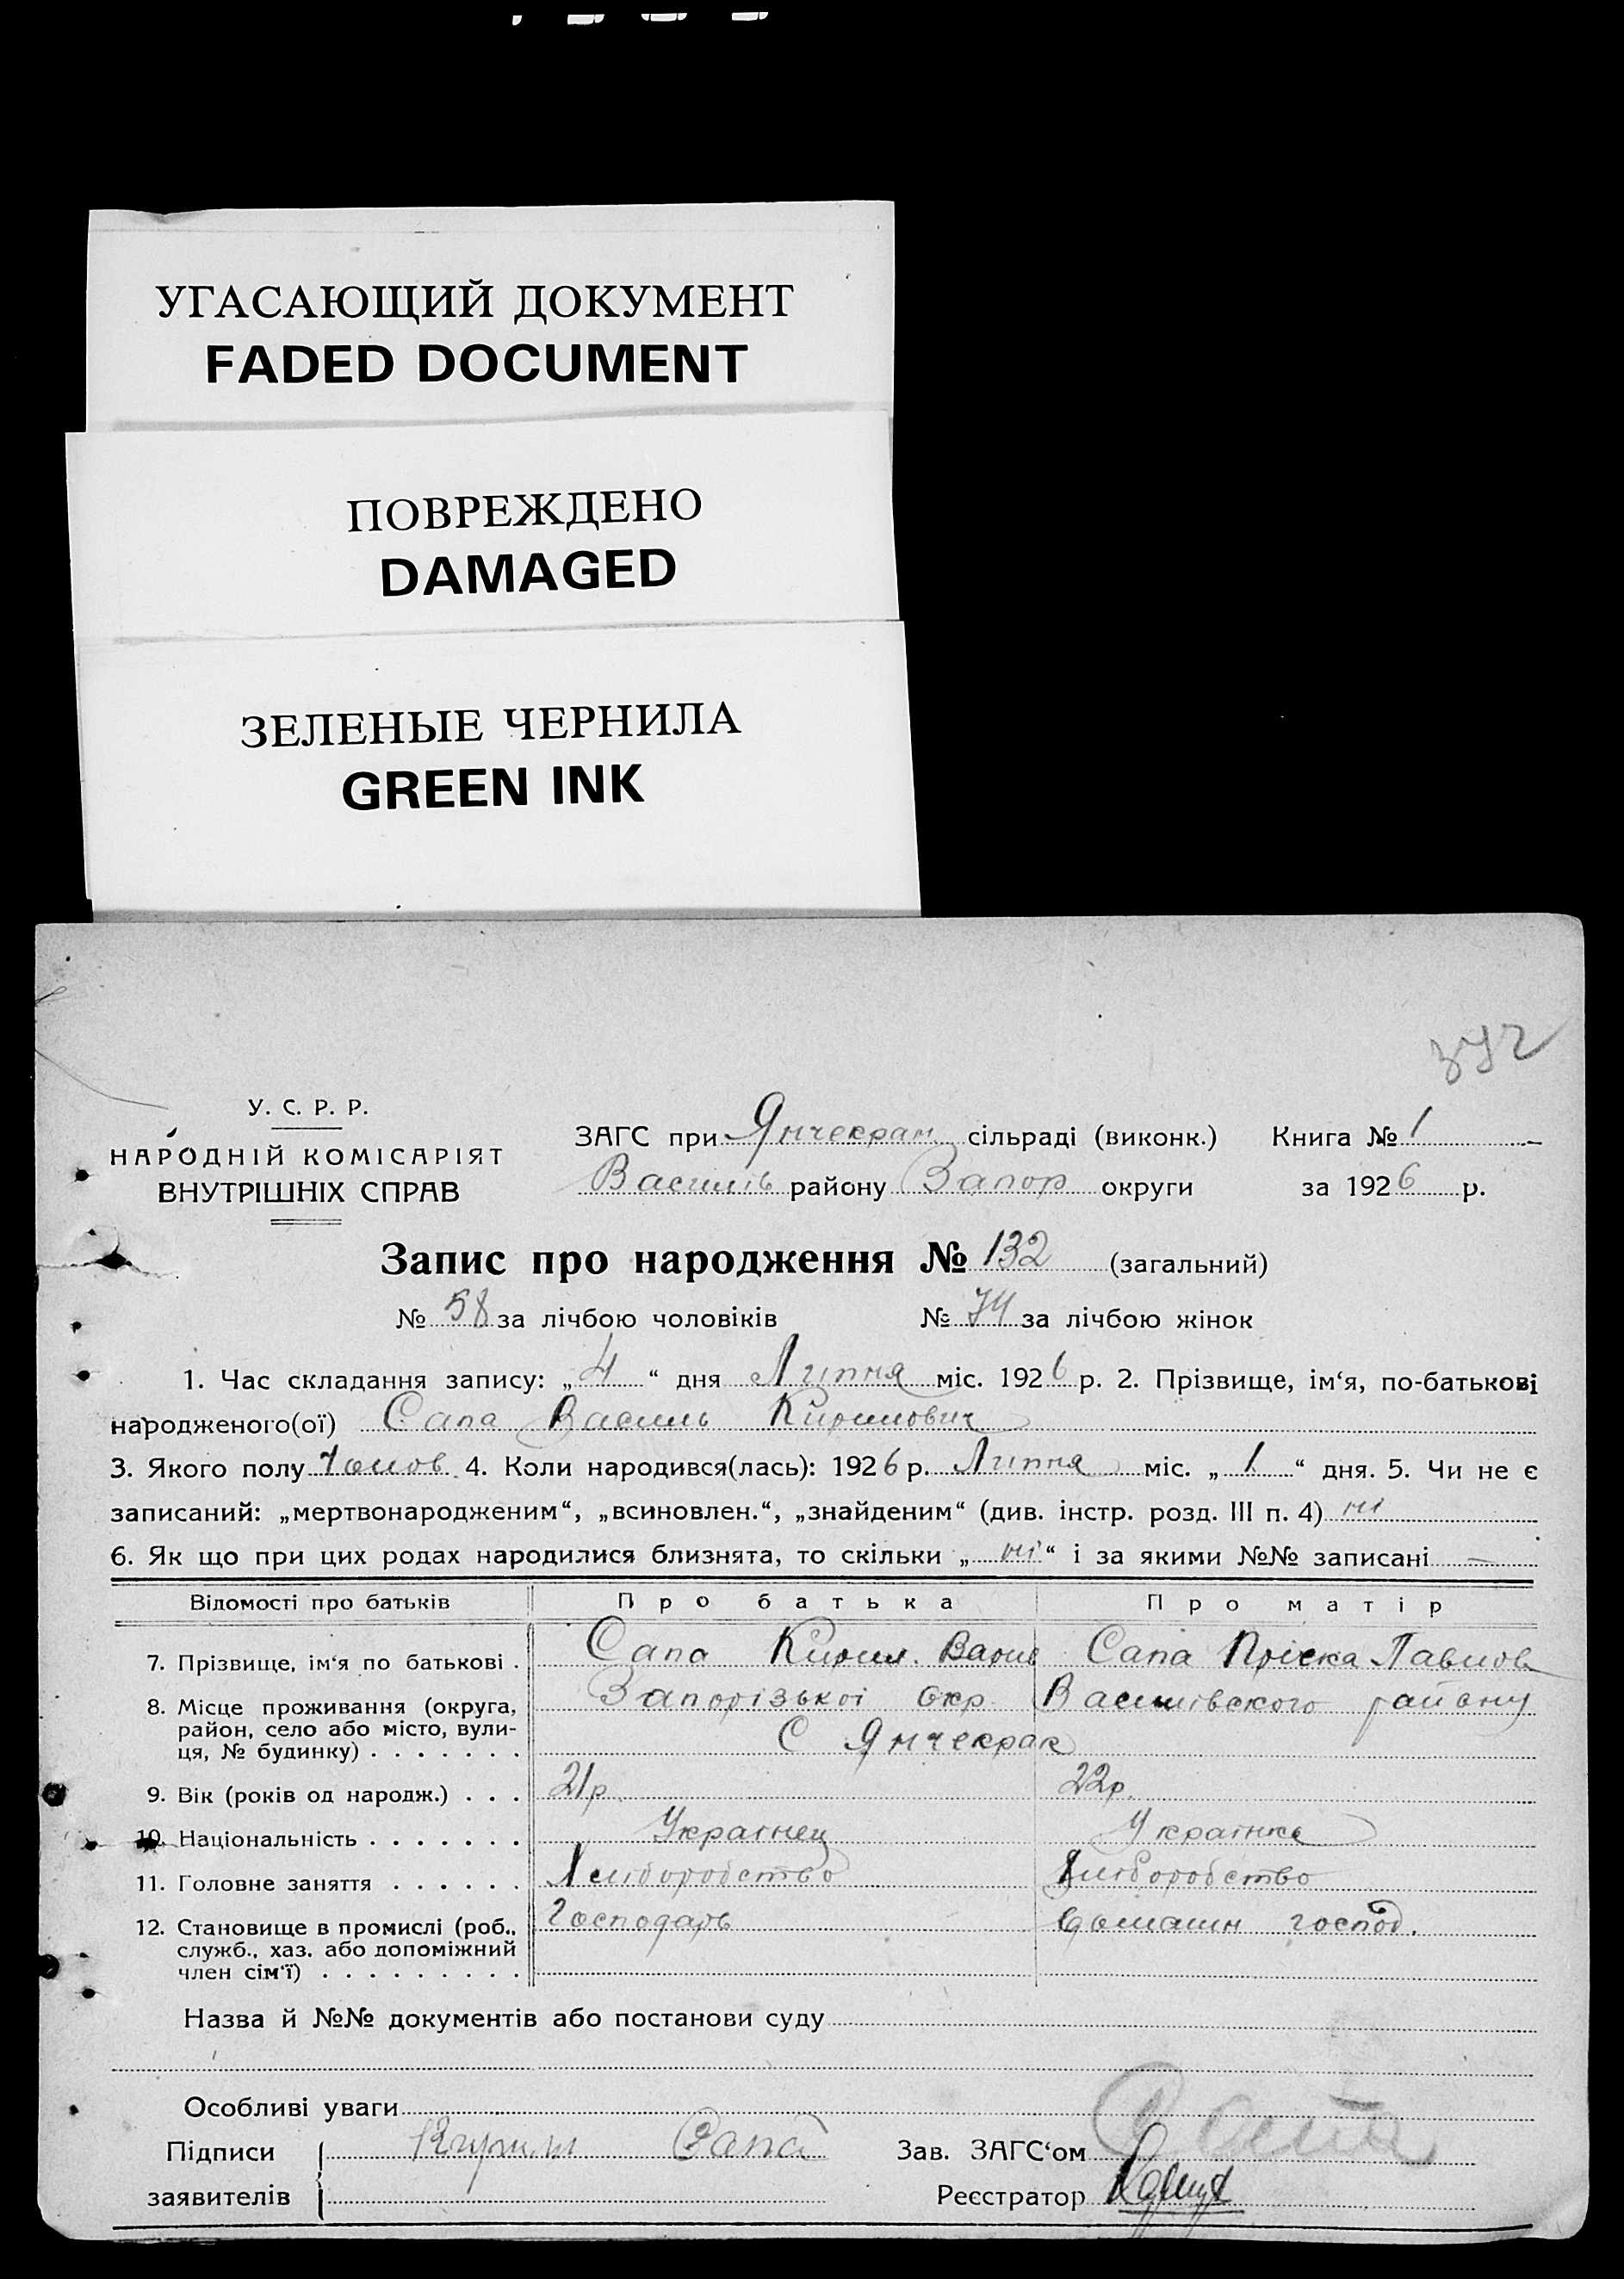 УГАСАЮЩИЙ ДОКУМЕНТ
FADED DOCUMENT
ПОВРЕЖДЕНО
DAMAGED
ЗЕЛЕНЫЕ ЧЕРНИЛА
GREEN INK
У. С. Р. Р.
НАРОДНІЙ КОМІСАРІЯТ
ВНУТРІШНІХ СПРАВ
ЗАГС при Янчекрак сільраді (виконк.) Книга № 1
Василів району Запор округи за 1926 р.
Запис про народження № 132 (загальний)
№ 58 за лічбою чоловіків № 74 за лічбою жінок
1. Час складання запису: „4“ дня Липня міс. 1926 р. 2. Прізвище, ім‘я, по-батькові
народженого(ої) Сапа Василь Кирилович
3. Якого полу Чолов. 4. Коли народився(лась): 1926 р. Липня міс. „1“ дня. 5. Чи не є
записаний: „мертвонародженим“, „всиновлен.“, „знайденим“ (див. інстр. розд. III п. 4) ні
6. Як що при цих родах народилися близнята, то скільки „ні“ і за якими №№ записані —
Відомості про батьків Про батька Про матір
7. Прізвище, ім‘я по батькові . Сапа Кирил. Сапа Пріска Павлов
8. Місце проживання (округа, Запорізької Окр. Василівского району
район, село або місто, вули-
ця, № будинку) . . . . . . . С Янчекрак
9. Вік (років од народж.) . . . 21р. 22р.
10. Національність . . . . . . . Українец Українка
11. Головне заняття . . . . . . Хліборобство Хліборобство
12. Становище в промислі (роб., Господарь домашн господ.
служб., хаз. або допоміжний
член сім‘ї) . . . . . . . . .
Назва й №№ документів або постанови суду
Особливі уваги
Підписи Кирил Сапа Зав. ЗАГС‘ом
заявителів Реєстратор